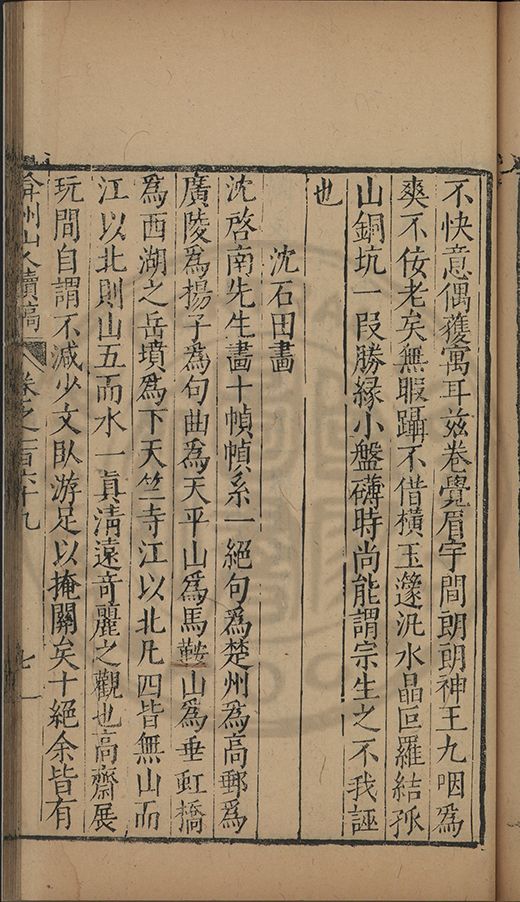 不快意偶獲寓耳茲卷覺眉宇間朗朗神王九咽爲
爽不佞老矣無暇躡不借橫玉𨗉汎水晶叵羅結孤
山銅坑一段勝緣小盤礴時尚能謂宗生之不我誣
也
沈石田畫
沈啓南先生畫十幀幀系一絕句爲楚州爲高郵爲
廣陵爲揚子爲句曲爲天平山爲馬鞍山爲垂虹橋
爲西湖之岳墳爲下天竺寺江以北凡四皆無山而
江以北則山五而水一眞淸遠奇麗之觀也高齋展
玩間自謂不減少文臥游足以掩關矣十絕余皆有
弇州山人續稿 卷之一百六十九 七